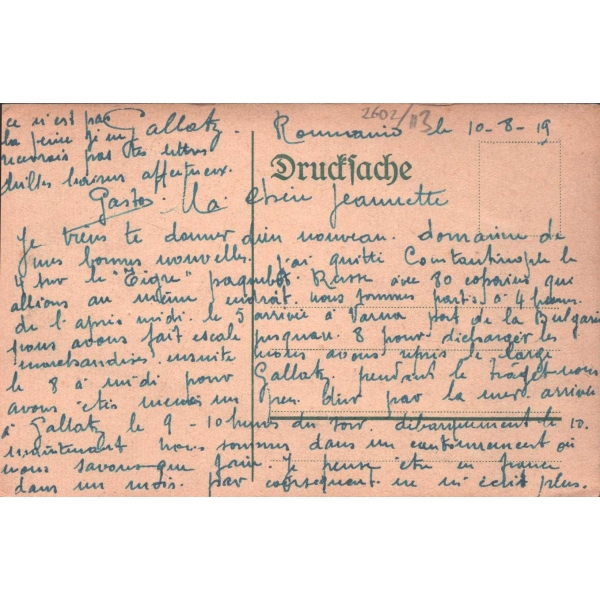 2602/113
Gallatz. Roumanie le 10-8-19
Drucksache
Ma Chère Jeannette
Je viens te donner de nouveau
mes bonnes nouvelles. j'ai quitté Constantinople le
4 sur le "Tigre" paquebot Russe avec 80 copains qui
allions au même endroit. nous sommes partis à 4 heures
de l'apres midi. le 5 arrivée à Varna port de la Bulgarie
nous avons fait escale jusquau 8 pour décharger les
marchandises ensuite nous avons repris le large
le 8 à midi pour Gallatz, pendant le trajet nous
avons étés un peu par la mer. arrivée
à Gallatz le 9 - 10 heures du soir. débarquement le 10.
maintenant nous sommes dans un cantonnement où
nous savons que faire. Je pense être en france
dans un mois. par conséquent ne m'écrit plus.
ce n'est pas
la peine
pas tes lettres
milles baisers affectueux.
Gaston